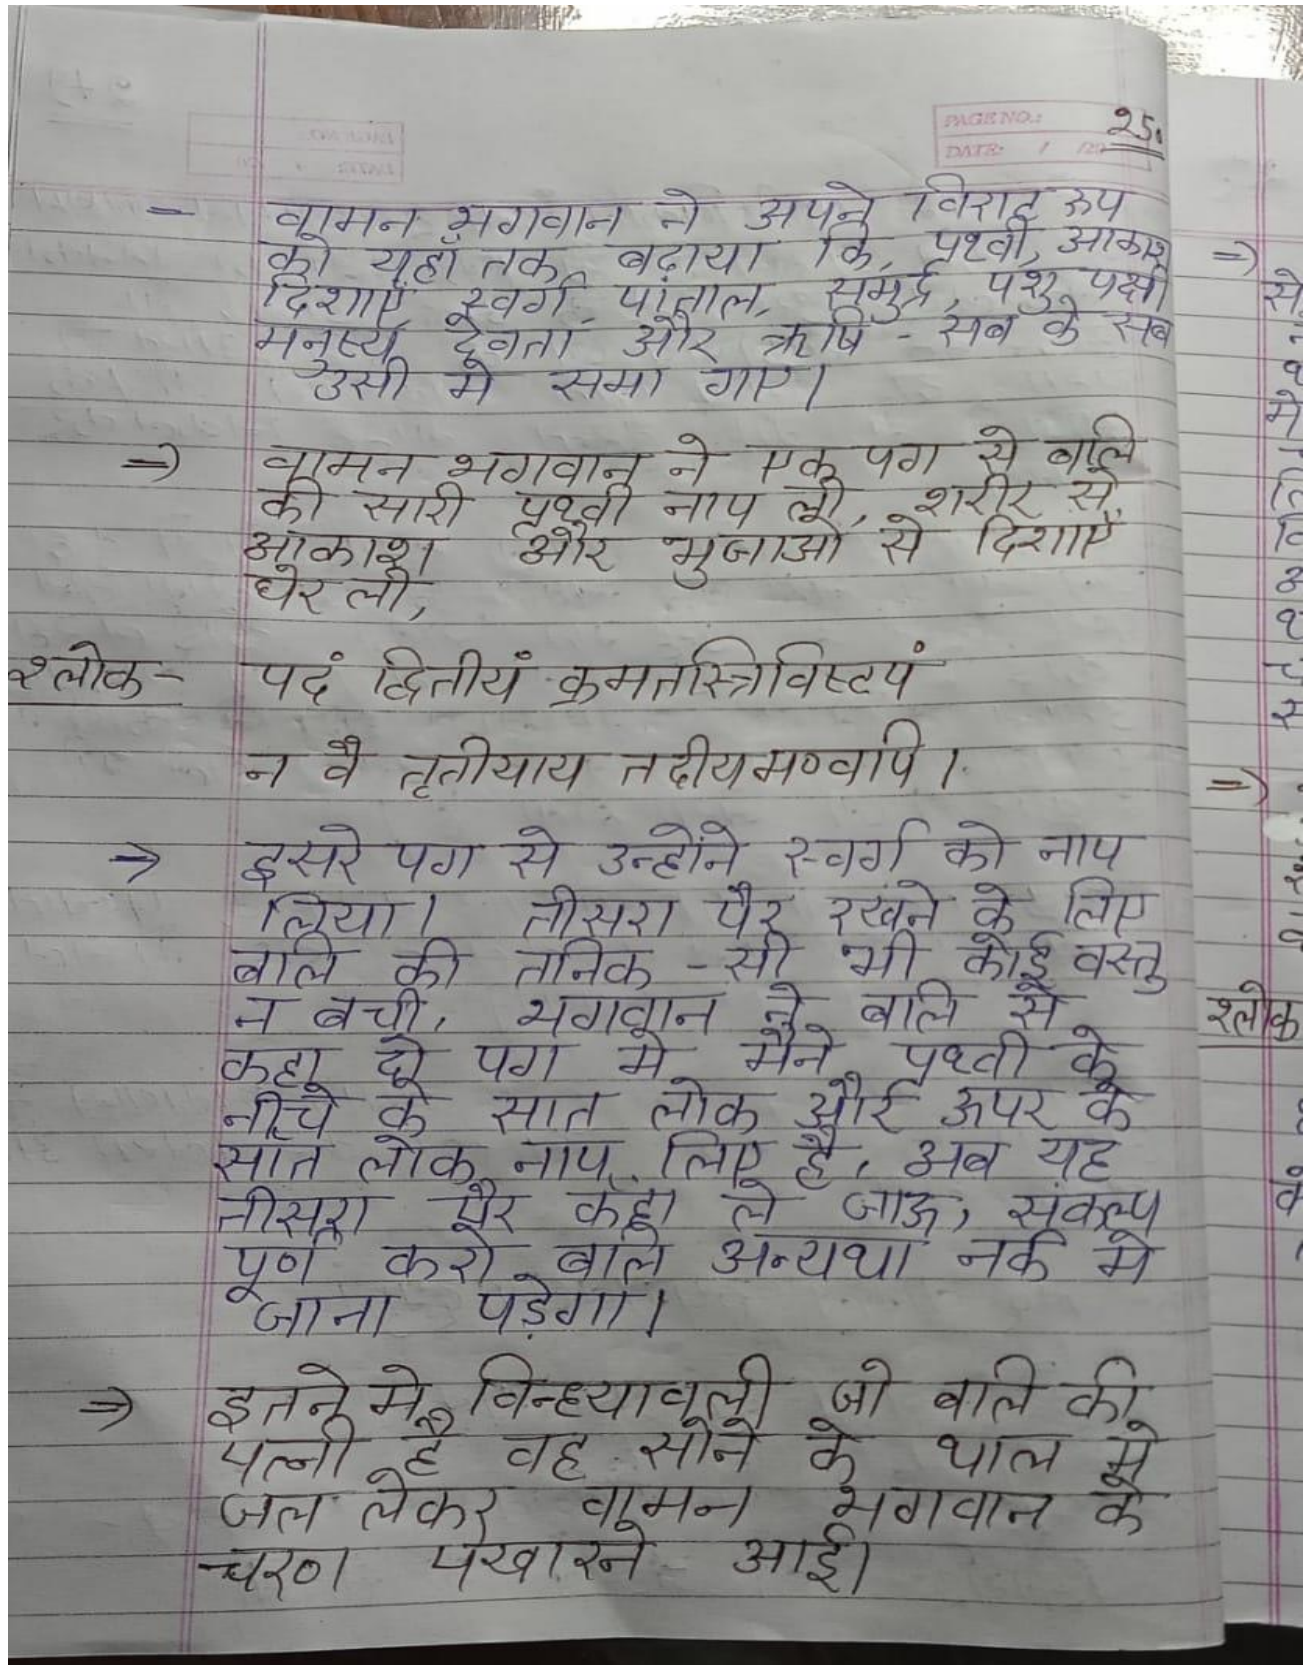 PAGE NO.:
DATE: / /20
25.
- वामन भगवान ने अपने विराट रूप
को यहाँ तक बढ़ाया कि, पृथ्वी, आकाश
दिशाएं, स्वर्ग, पाताल, समुद्र, पशु पक्षी
मनुष्य, देवता और ऋषि - सब के सब
उसी मे समा गए।
=> वामन भगवान ने एक पग से बलि
की सारी पृथ्वी नाप ली, शरीर से
आकाश और भुजाओ से दिशाएँ
घेर ली,
श्लोक - पदं द्वितीयं क्रमतस्त्रिविष्टपं
न वै तृतीयाय तदीयमण्वपि।
=> दूसरे पग से उन्होंने स्वर्ग को नाप
लिया। तीसरा पैर रखने के लिए
बलि की तनिक - सी भी कोई वस्तु
न बची, भगवान ने बलि से
कहा दो पग मे मैने पृथ्वी के
नीचे के सात लोक और ऊपर के
सात लोक नाप लिए है, अब यह
तीसरा पैर कहा ले जाऊ, संकल्प
पूर्ण करो बलि अन्यथा नर्क मे
जाना पड़ेगा।
=> इतने मे विन्ध्यावली जो बलि की
पत्नी है वह सोने के थाल मे
जल लेकर वामन भगवान के
चरण पखारने आई।
=>
=>
श्लोक